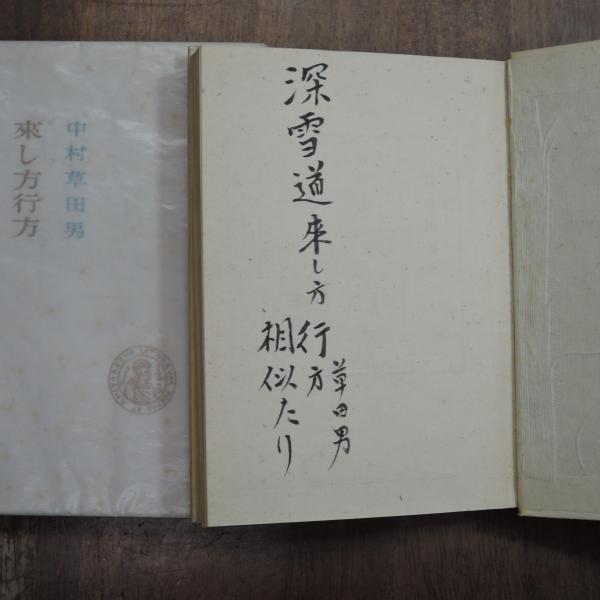 深雪道来し方行方
相似たり
草田男
中村草田男
來し方行方